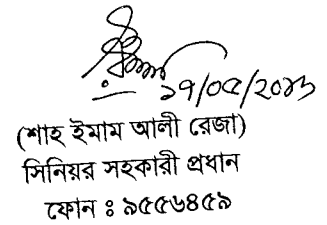 ১৭/০৫/২০১৩
(শাহ ইমাম আলী রেজা)
সিনিয়র সহকারী প্রধান
ফোন ঃ ৯৫৫৬৪৫৯